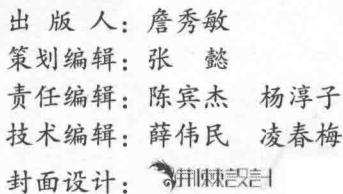 出版人：詹秀敏
策划编辑：张 懿
责任编辑：陈宾杰 杨淳子
技术编辑：薛伟民 凌春梅
封面设计：荆棘設計